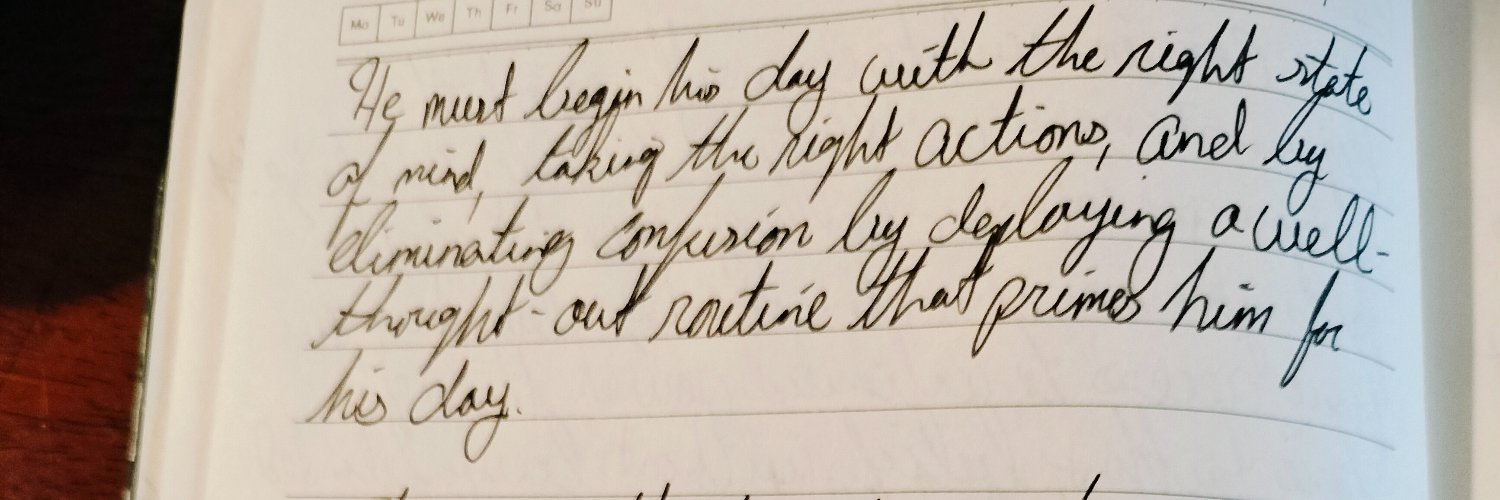 Mo Tu We Th Fr Sa Su
He must begin his day with the right state
of mind, taking the right actions, and by
eliminating confusion by deploying a well-
thought-out routine that primes him for
his day.